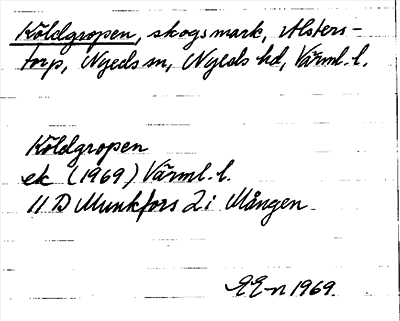 Köldgropen, skogsmark, Alsters-
torp, Nyeds sn, Nyeds hd, Värml. l.
Köldgropen
ek (1969) Värml. l.
11 D Munkfors 2 i Mången
EE-n 1969.